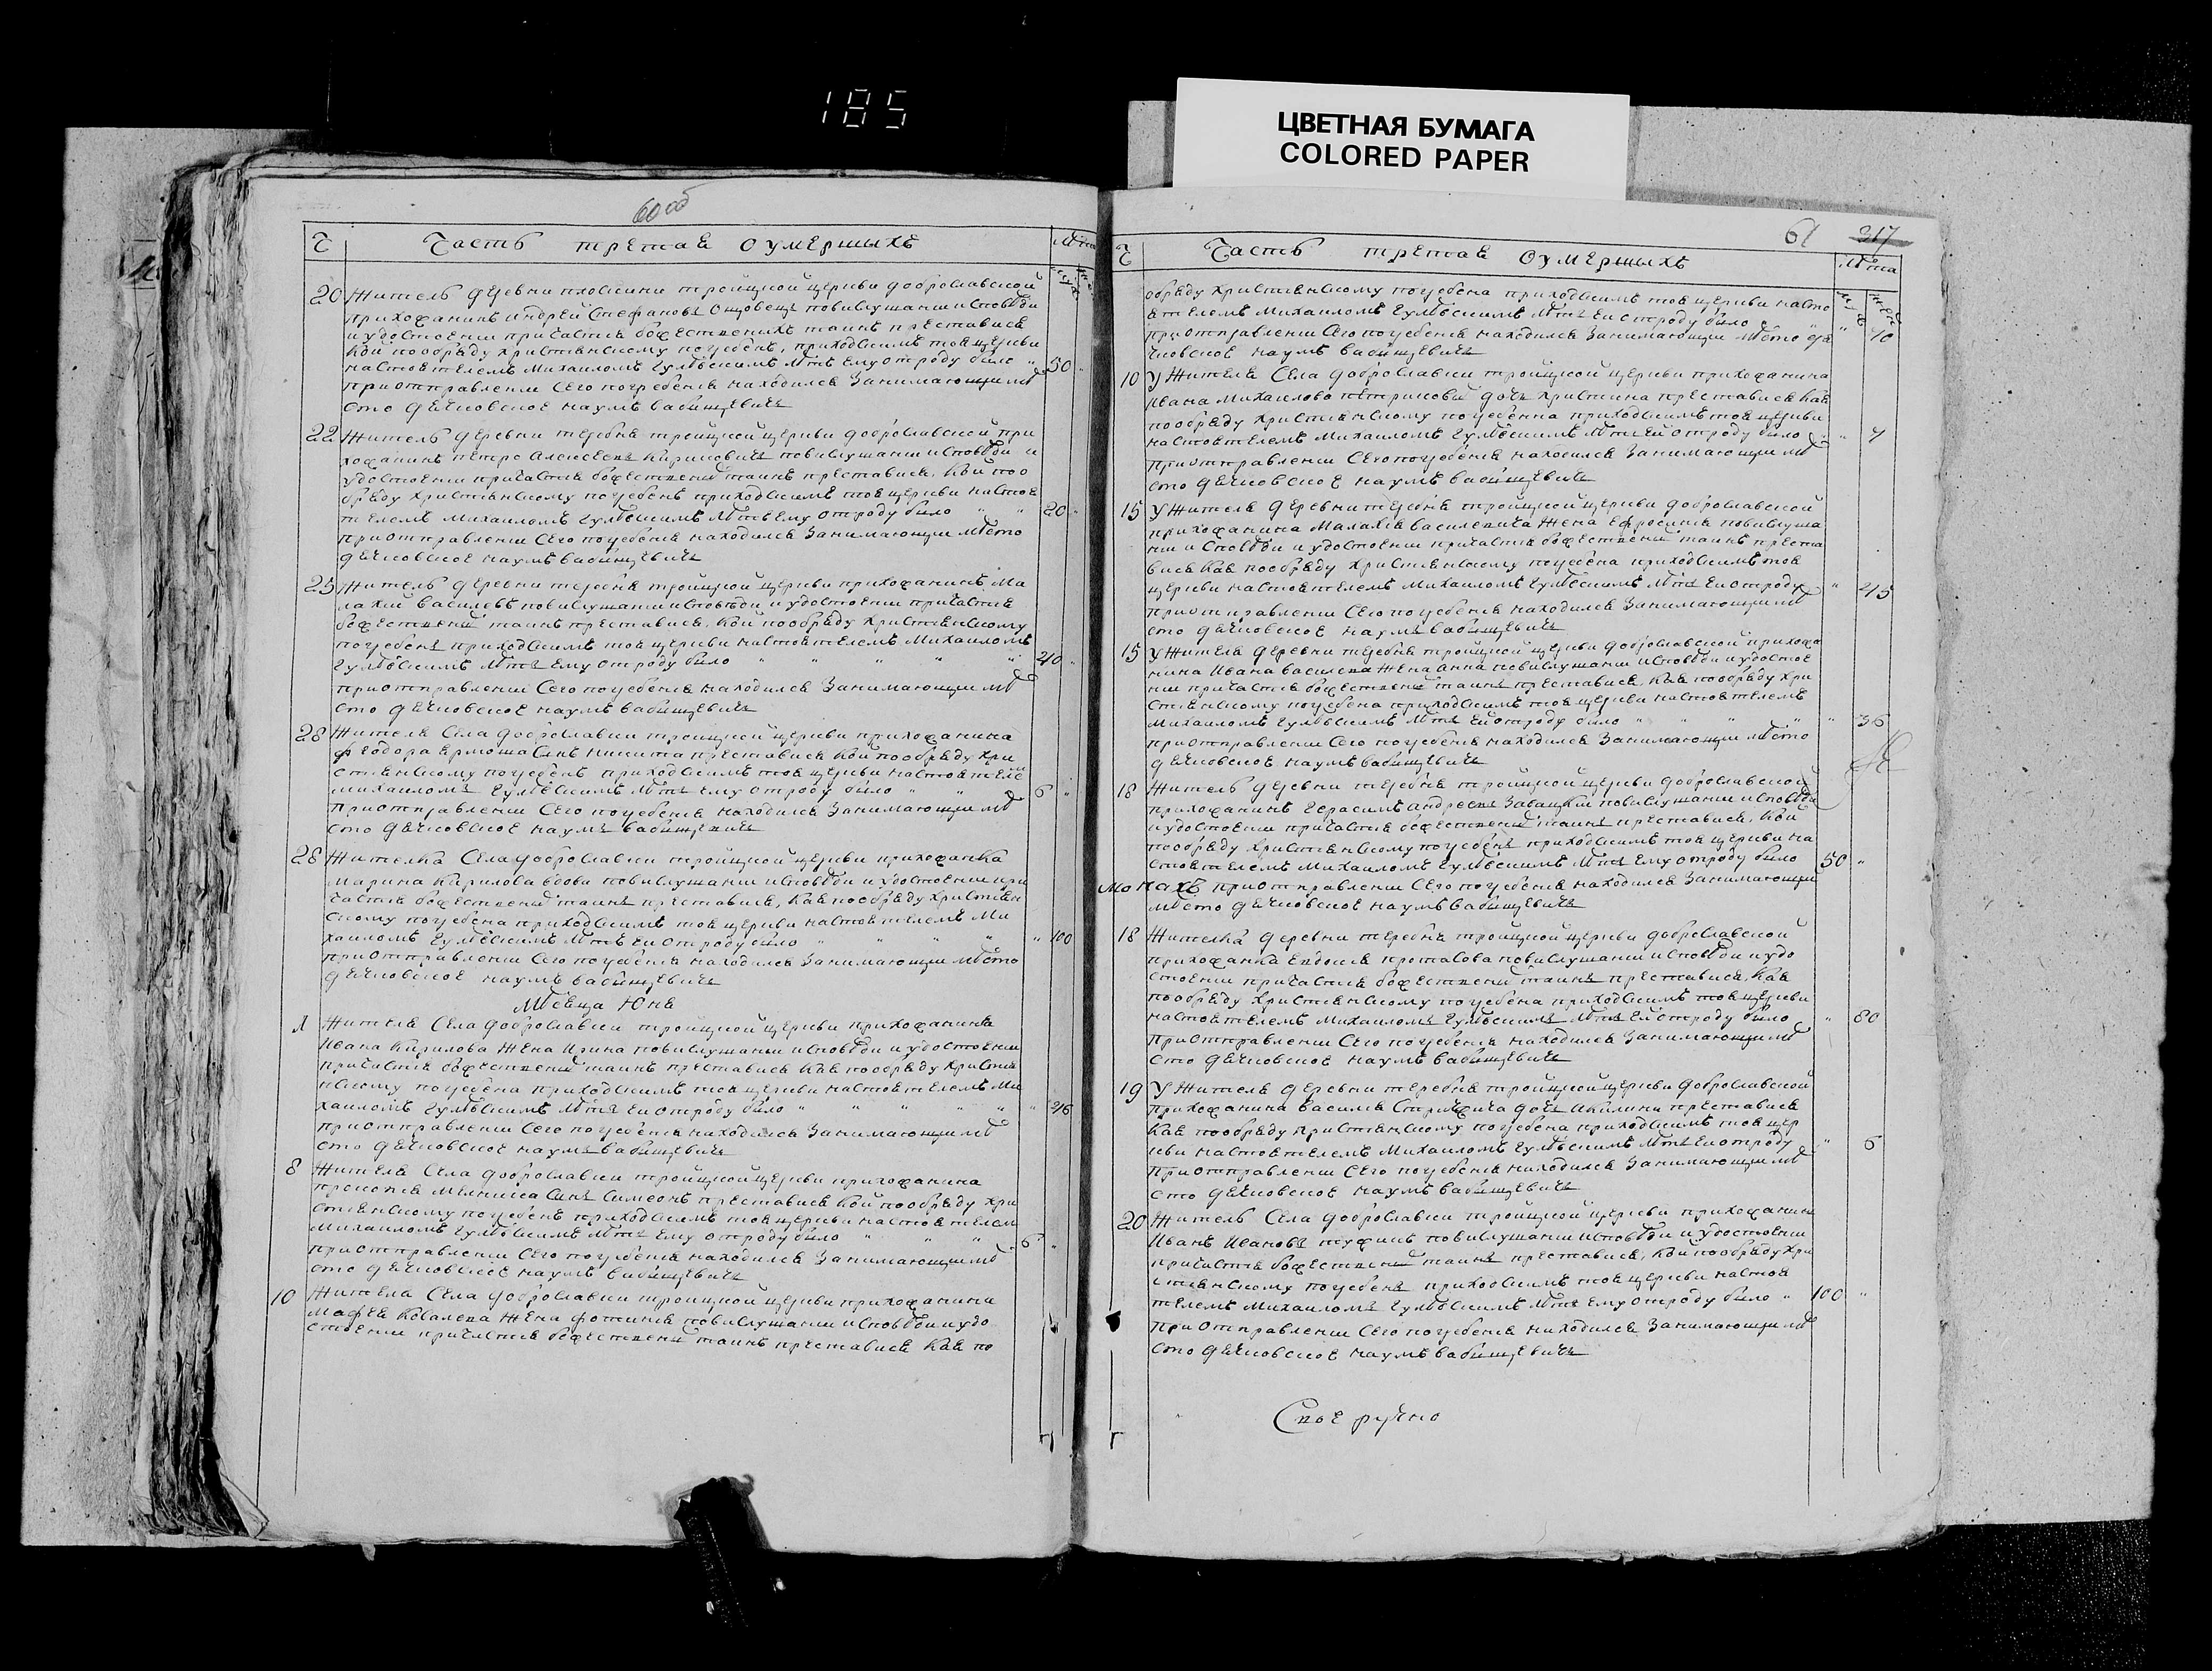 185
ЦВЕТНАЯ БУМАГА
COLORED PAPER
60 об
Ч Часть третая о умершыхъ Лѣта
20 Житель деревни плоскини троицкой церкви доброславской
прихожанинъ Андрей Стефановъ повислушании исповѣди
и удостоении причастия божественыхъ таинъ преставися
кой пообряду християнскому погребенъ, приходскимъ тоя церкви
настоятелемъ Михаиломъ лѣтъ ему отроду било 50
приотправлении Сего погребения находился Занимающии мѣ
сто дячковское наумъ вабищевичъ
22 Житель деревни теребня троицкой церкви доброславской при
хожанинъ петро Алексеевъ Кирисовичъ повислушании исповѣди и
удостоении причастия божествены таинъ преставися, кой поо
бряду християнскому погребенъ приходскимъ тоя церкви настоя
телемъ Михаиломъ лѣтъ Ему отроду било 20
приотправлении Сего погребения находился Занимающии мѣсто
дячковское наумъ вабищевичъ
25 Житель деревни теребня троицкой церкви прихожанинъ Ма
лахии василевъ повислушании исповѣди и удостоении причастия
божествены таинъ преставися, кой пообряду християнскому
погребенъ приходскимъ тоя церкви настоятелемъ Михаиломъ
лѣтъ Ему отроду било 40
приотправлении Сего погребения находился Занимающии мѣ
сто дячковское наумъ вабищевичъ
28 Жителя Села доброславки троицкой церкви прихожанина
феодора ермоша Синъ никита преставися кой пообряду хри
стиянскому погребенъ приходскимъ тоя церкви настоятеле
михаиломъ лѣтъ ему отроду било 6
приотправлении Сего погребения находился Занимающии мѣ
сто дячковское наумъ вабищевичъ
28 Жителка Села доброславки троицкой церкви прихожанка
Марина Кирилова вдова повислушании исповѣди и удостоении при
частия божествены таинъ преставися, Кая пообряду християн
скому погребена приходскимъ тоя церкви настоятелемъ Ми
хаиломъ лѣтъ ей отроду било 100
приотправлении Сего погребения находился Занимающии мѣсто
дячковское наумъ вабищевичъ
Мѣсяца Юня
1 Жителя Села доброславки троицкой церкви прихожанина
Ивана Кирилова Жена Ирина повислушании исповѣди и удостоении
причастия божествены таинъ преставися Кая пообряду християн
нскому погребена приходскимъ тоя церкви настоятелемъ Ми
хаиломъ лѣтъ ей отроду било 46
приотправлении Сего погребения находился Занимающии мѣ
сто дячковское наумъ вабищевичъ
8 Жителя Села доброславки троицкой церкви прихожанина
прокопия Мелника Синъ Симеонъ преставися кой пообряду хри
стиянскому погребенъ приходскимъ тоя церкви настоятелем
Михаиломъ лѣтъ Ему отроду било 6
приотправлении Сего погребения находился Занимающии мѣ
сто дячковское наумъ вабищевичъ
10 Жителя Села доброславки троицкой церкви прихожанина
Мафея Ковалева Жена фотиния повислушании исповѣди и удо
стоении причастия божествены таинъ преставися Кая по
61 317
Ч Часть третая о умершыхъ Лѣта
обряду християнскому погребена приходскимъ тоя церкви насто
ятелемъ Михаиломъ лѣтъ ей отроду било 40
приотправлении Сего погребения находился Занимающии мѣсто дя
чковское наумъ вабищевичъ
10 У Жителя Села доброславки троицкой церкви прихожанина
Ивана Михаилова дочь християна преставися Кая
пообряду християнскому погребенна приходскимъ тоя церкви
настоятелемъ Михаиломъ лѣтъ Ей отроду било 7
приотправлении Сего погребения находился Занимающии мѣ
сто дячковское наумъ вабищевичъ
15 У Жителя деревни теребня троицкой церкви доброславской
прихожанина Малахия василевича Жена Ефросиния повислуша
нии и Сповѣди и удостоении причастия божествены таинъ преста
вися Кая пообряду християнскому погребена приходскимъ тоя
церкви настоятелемъ Михаиломъ лѣтъ Ей отроду 45
приотправлении Сего погребения находился Занимающии мѣ
сто дячковское наумъ вабищевичъ
15 У Жителя деревни теребня троицкой церкви доброславской прихожа
нина Ивана василева Жена анна повислушании исповѣди и удостое
нии причастия божествены таинъ преставися, Кая пообряду хри
стиянскому погребена приходскимъ тоя церкви настоятелемъ
михаиломъ лѣтъ Ей отроду било 36
приотправлении Сего погребения находился Занимающии мѣсто
дячковское наумъ вабищевичъ
18 Житель деревни теребня троицкой церкви доброславской
прихожанинъ Герасимъ андреевъ Завацкий повислушании исповѣди
и удостоении причастия божествены таинъ преставися, кой
пообряду християнскому погребенъ приходскимъ тоя церкви на
стоятелемъ Михаиломъ лѣтъ Ему отроду било 50
монахъ приотправлении Сего погребения находился Занимающии
мѣсто дячковское наумъ вабищевичъ
18 Жителка деревни теребня троицкой церкви доброславской
прихожанка Евдокия протасова повислушании исповѣди и удо
стоении причастия божествены таинъ преставися, Кая
пообряду християнскому погребена приходскимъ тоя церкви
настоятелемъ Михаиломъ лѣтъ Ей отроду било 80
приотправлении Сего погребения находился Занимающии мѣ
сто дячковское наумъ вабищевичъ
19 У Жителя деревни теребня троицкой церкви доброславской
прихожанина василия дочь Акилина преставися
Кая пообряду християнскому погребена приходскимъ тоя цер
кви настоятелемъ Михаиломъ лѣтъ Ей отроду 6
приотправлении Сего погребения находился Занимающии мѣ
сто дячковское наумъ вабищевичъ
20 Житель Села доброславки троицкой церкви прихожанин
Иванъ Ивановъ повислушании исповѣди и удостоении
причастия божествены таинъ преставися, кой пообряду хри
стиянскому погребенъ приходскимъ тоя церкви настоя
телемъ Михаиломъ лѣтъ Ему отроду било 100
приотправлении Сего погребения находился Занимающии мѣ
сто дячковское наумъ вабищевичъ
Своеручно